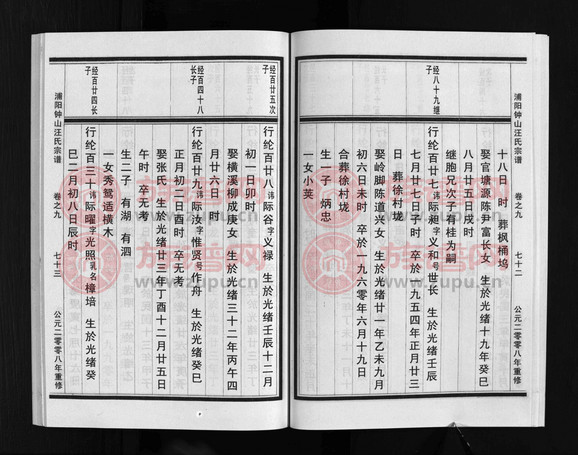 浦阳钟山汪氏宗谱
卷之九
七十二
公元二零零八年重修
十八日 时 葬枫桶坞
娶官塘源陈尹富长女 生於光绪十九年癸巳
八月廿五日戌时
继胞兄次子有桂为嗣
经八十九继子
行纶百廿七讳际昶字义和号世长 生於光绪壬辰
七月廿七日子时 卒於一九五四年正月廿三
日 葬徐村垅
娶岭脚陈道兴女 生於光绪廿一年乙未九月
初六日未时 卒於一九六零年六月十九日
合葬徐村垅
生一子 炳忠
一女小荚
经百廿五次子
行纶百廿八讳际谷字义禄 生於光绪壬辰十二月
初一日卯时
娶横溪柳成庚女 生於光绪三十二年丙午四
月廿六日 时
经百四十八长子
行纶百廿九讳际汝字惟贤号作舟 生於光绪癸巳
正月初二日酉时 卒无考
娶张氏 生於光绪廿三年丁酉十二月廿五日
午时 卒无考
生二子 有湖 有泗
一女秀鸳适横木
经百廿四长子
行纶百三十讳际曜字光照乳名樟培 生於光绪癸
巳二月初八日辰时
浦阳钟山汪氏宗谱
卷之九
七十三
公元二零零八年重修
族谱网
www.zupu.cn